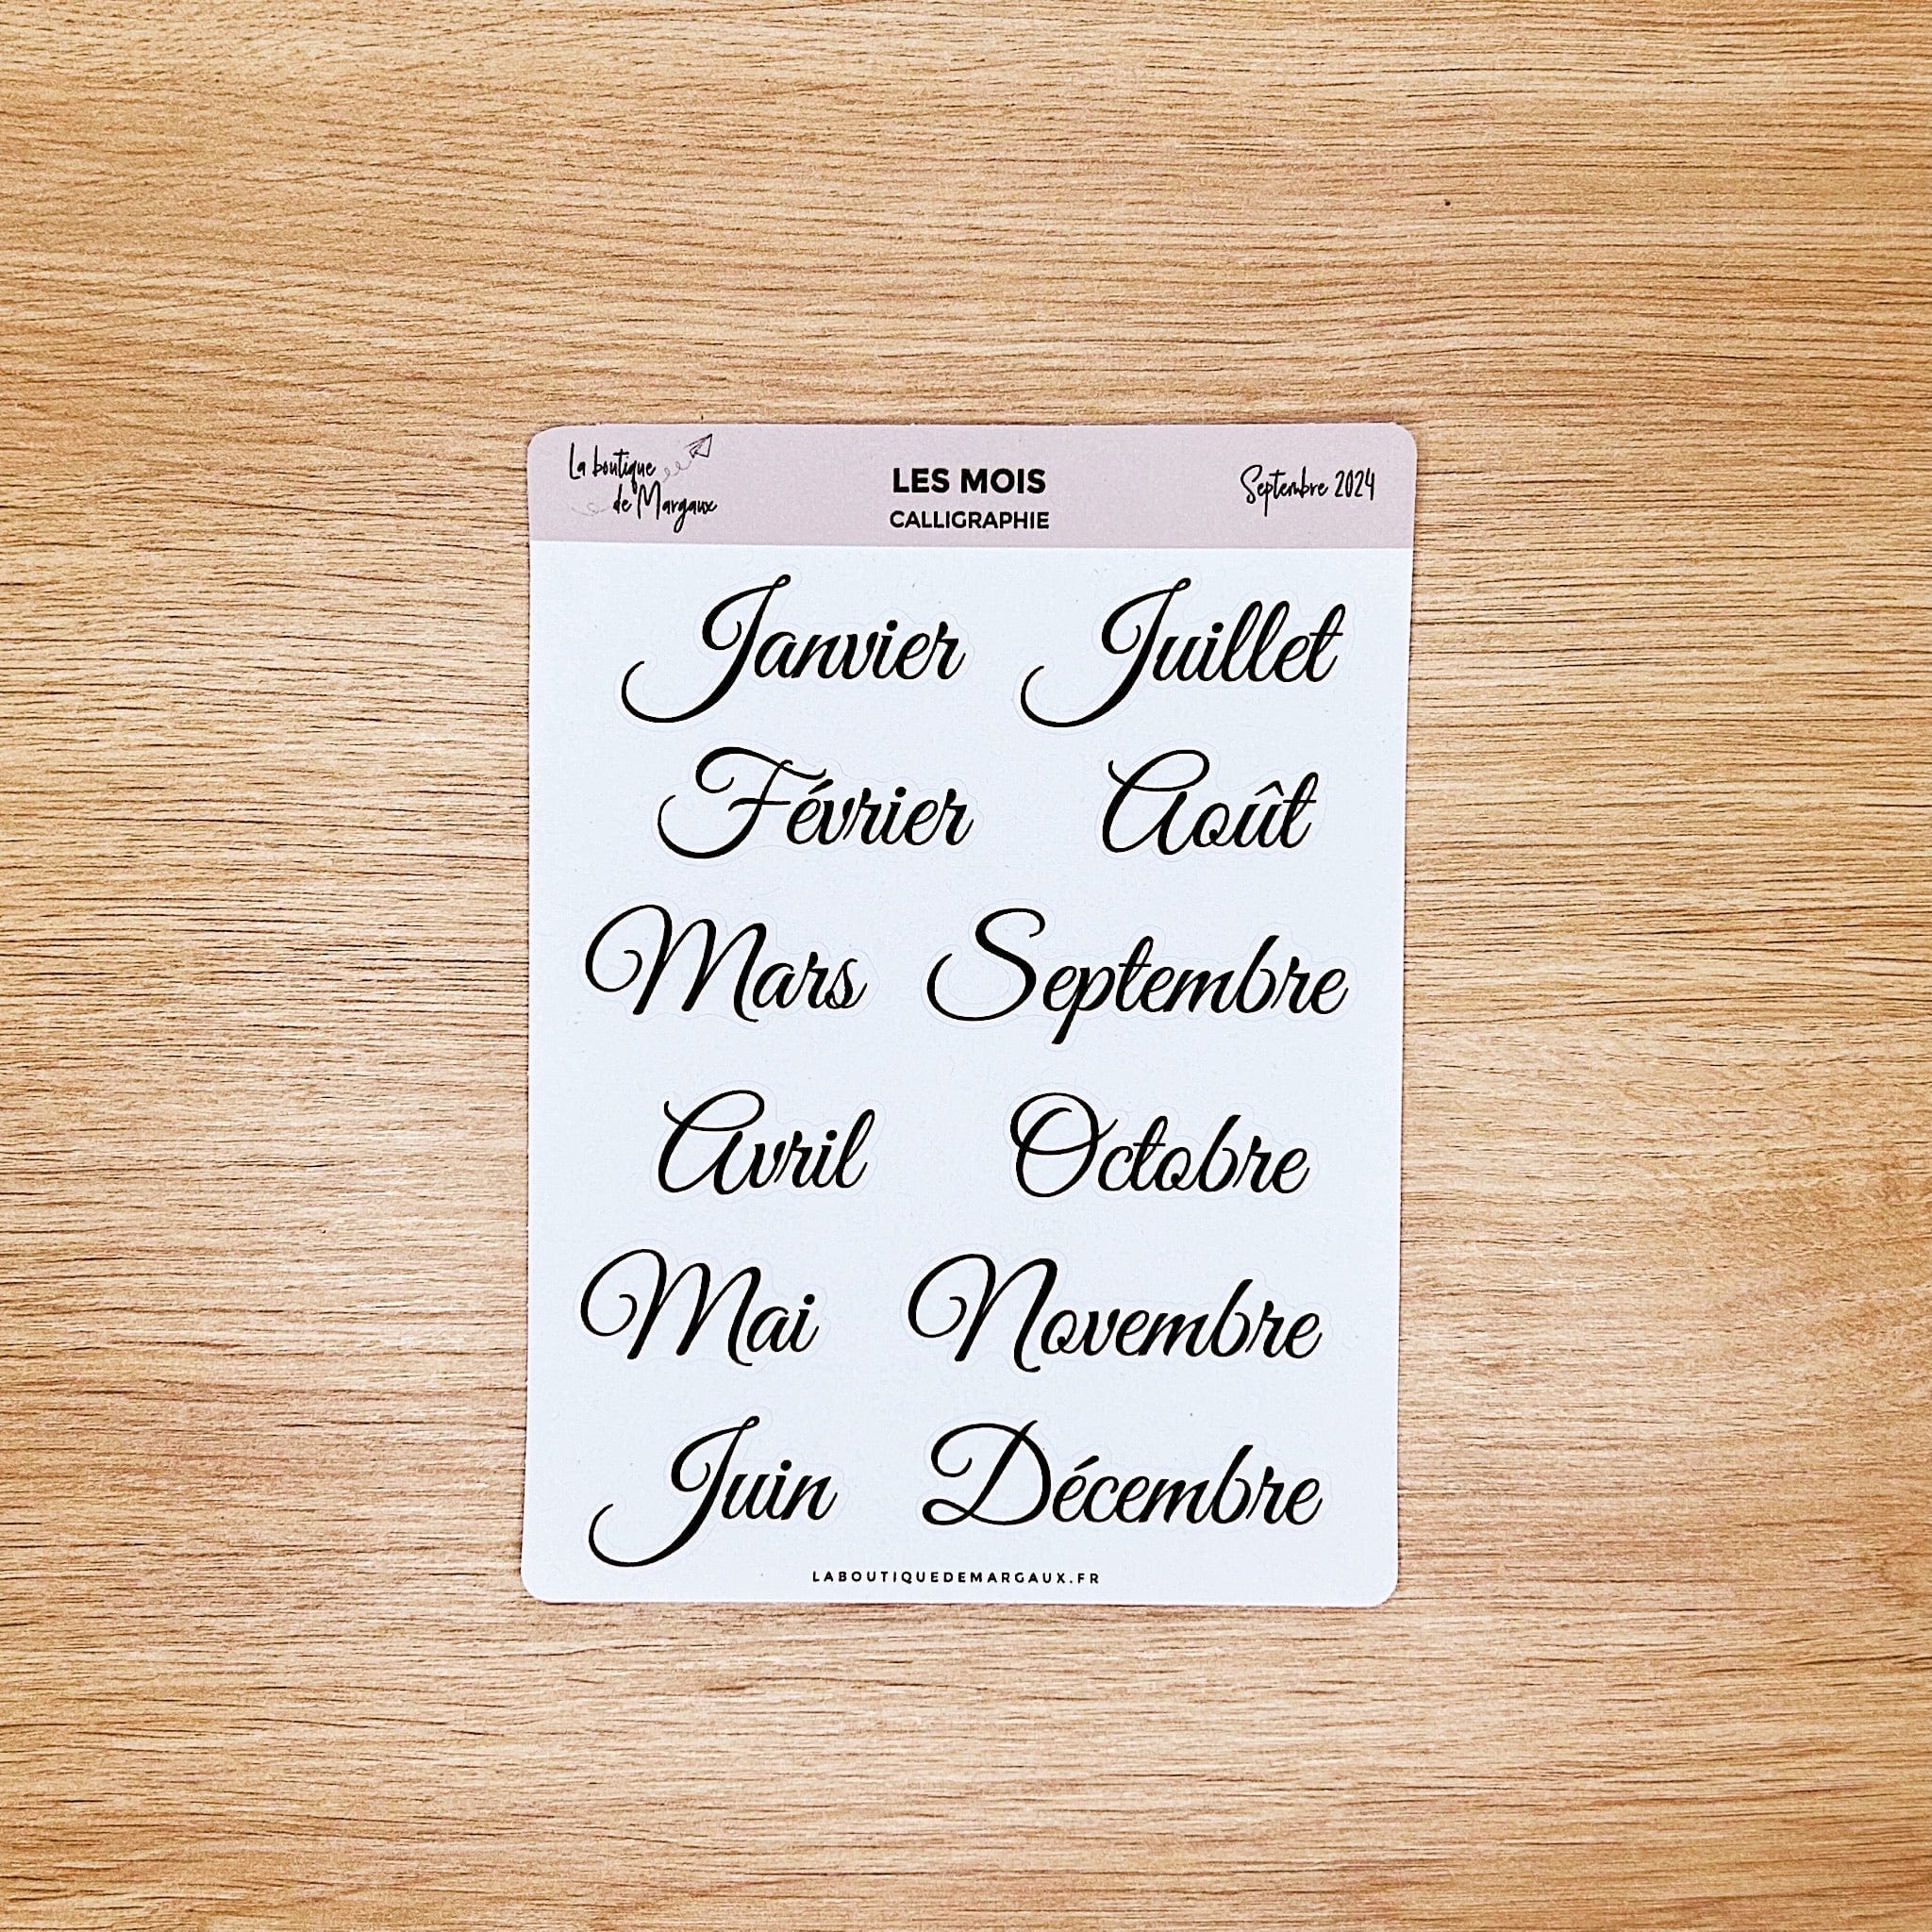 La boutique
de Margaux
LES MOIS
CALLIGRAPHIE
Septembre 2024
Janvier
Juillet
Février
Août
Mars
Septembre
Avril
Octobre
Mai
Novembre
Juin
Décembre
LABOUTIQUEDEMARGAUX.FR